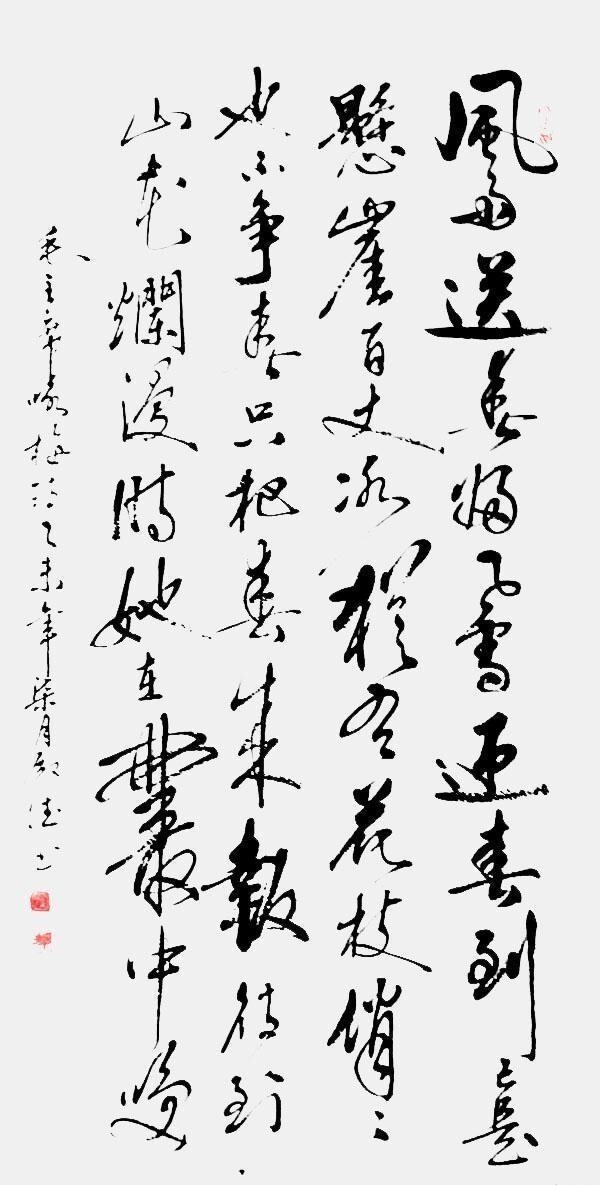 風雨送春歸飛雪迎春到已是
懸崖百丈冰猶有花枝俏々
也不争春只把春來報待到
山花爛漫時她在叢中咲
毛主席咏梅詩乙未年柒月德书